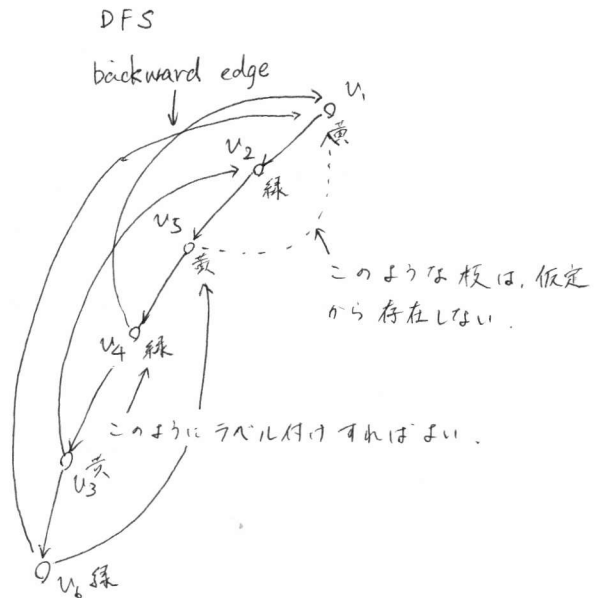 DFS
backward edge
v₁
黄
v₂
緑
v₅
黄
このような枝は、仮定
から存在しない.
v₄ 緑
このようにラベル付けすればよい.
v₃ 黄
v₆ 緑